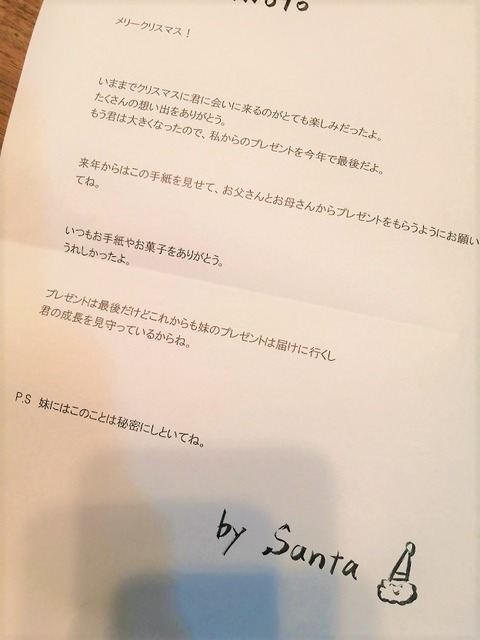 メリークリスマス！
いままでクリスマスに君に会いに来るのがとても楽しみだったよ。
たくさんの想い出をありがとう。
もう君は大きくなったので、私からのプレゼントを今年で最後だよ。
来年からはこの手紙を見せて、お父さんとお母さんからプレゼントをもらうようにお願い
てね。
いつもお手紙やお菓子をありがとう。
うれしかったよ。
プレゼントは最後だけどこれからも妹のプレゼントは届けに行くし
君の成長を見守っているからね。
P.S 妹にはこのことは秘密にしといてね。
by Santa